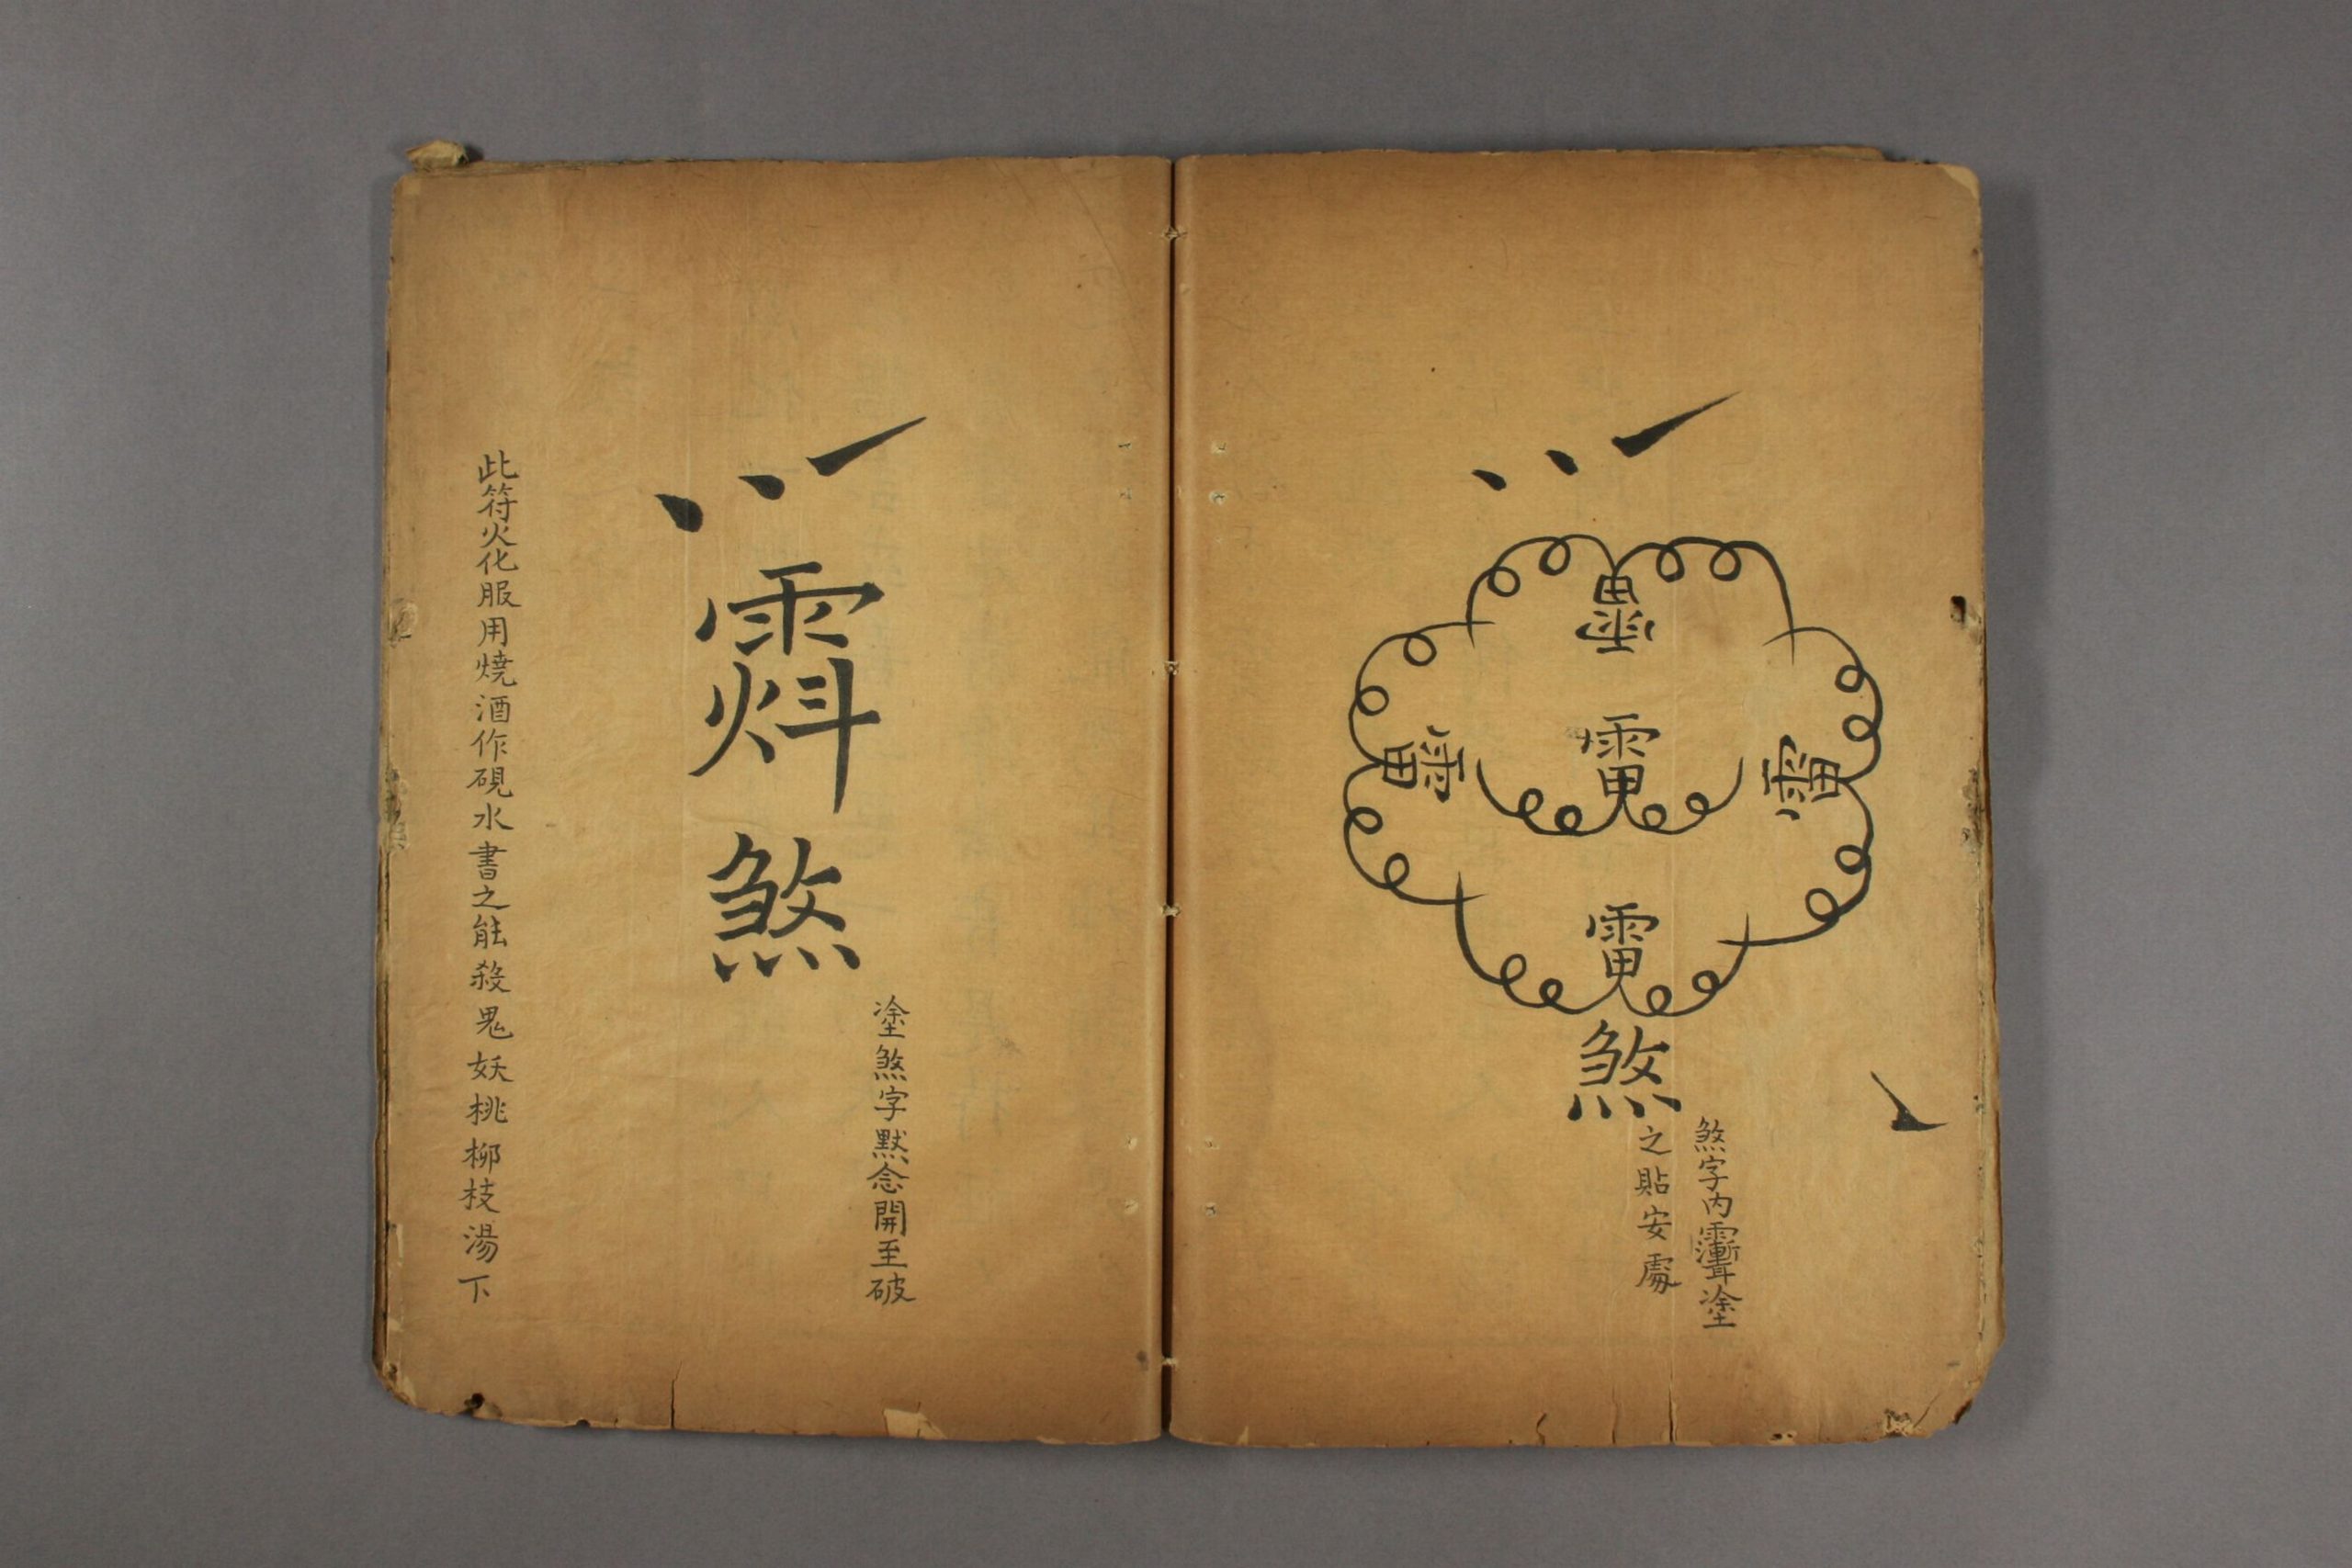 雷
雷
雷
雷
雷
煞
煞字内䨳聻塗
之貼安處
煞
塗煞字默念開至破
此符火化服用燒酒作硯水書之能殺鬼妖桃柳枝湯下